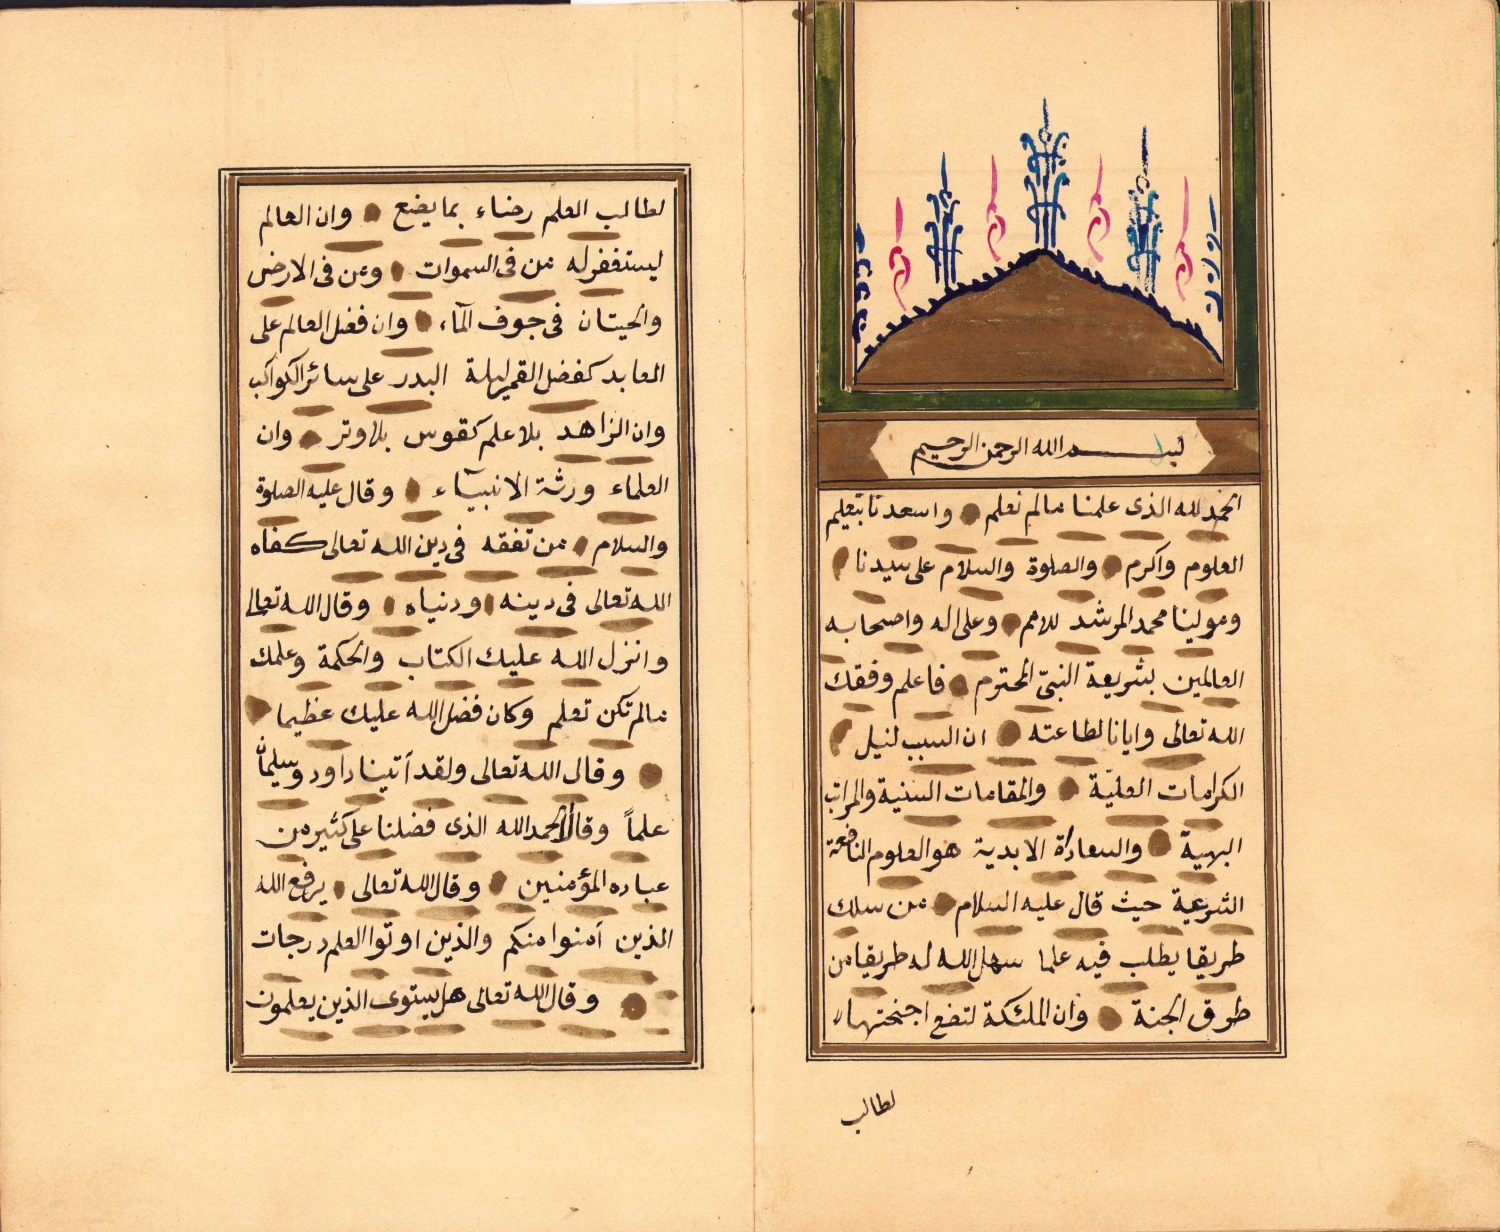 بسم الله الرحمن الرحيم
الحمد لله الذى علمنا مالم نعلم واسعدنا بتعليم
العلوم واكرم والصلوة والسلام على سيدنا
ومولينا محمد المرشد للامم وعلى اله واصحابه
العالمين بشريعة النبىّ المحترم فاعلم وفقك
الله تعالى وايانا لطاعته ان السبب لنيل
الكرامات العليّة والمقامات السنية والمراتب
البهيّة والسعادة الابدية هو العلوم النافعة
الشرعية حيث قال عليه السلام من سلك
طريقا يطلب فيه علما سهل الله له طريقا من
طرق الجنة وان الملئكة لتضع اجنحتها
لطالب
لطالب العلم رضاء بما يضع وان العالم
ليستغفر له من فى السموات ومن فى الارض
والحيتان فى جوف المآء وان فضل العالم على
العابد كفضل القمر ليلة البدر على سائر الكواكب
وان الزاهد بلا علم كقوس بلا وتر وان
العلماء ورثة الانبيآء وقال عليه الصلوة
والسلام من تفقه فى دين الله تعالى كفاه
الله تعالى فى دينه ودنياه وقال الله تعالى
وانزل الله عليك الكتاب والحكمة وعلمك
مالم تكن تعلم وكان فضل الله عليك عظيما
وقال الله تعالى ولقد آتينا داود وسليمان
علماً وقالا الحمد لله الذى فضلنا على كثير من
عباده المؤمنين وقال الله تعالى يرفع الله
الذين آمنوا منكم والذين اوتوا العلم درجات
وقال الله تعالى هل يستوى الذين يعلمون